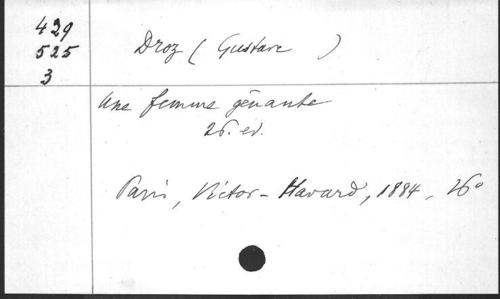 429
525
3
Droz (Gustave )
Une femme gênante
26. ed.
Paris, Victor-Havard, 1884, 16°